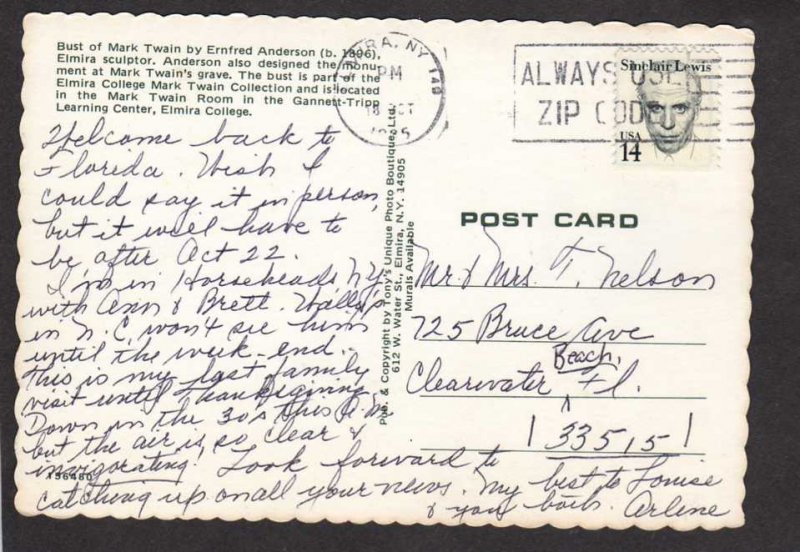 Bust of Mark Twain by Ernfred Anderson (b. 1896),
Elmira sculptor. Anderson also designed the monu-
ment at Mark Twain's grave. The bust is part of the
Elmira College Mark Twain Collection and is located
in the Mark Twain Room in the Gannett-Tripp
Learning Center, Elmira College.
Welcome back to
Florida. Wish I
could say it in person,
but it will have to
be after Oct 22.
I'm in Horseheads, NY
with Ann & Brett. Wally's
in N.C, won't see him
until the week-end.
This is my last family
visit until Thanksgiving.
Down in the 30's this A.M.
but the air is so clear &
invigorating. Look forward to
catching up on all your news. My best to Louise
& you both. Arlene
156480
Pub. & Copyright by Tony's Unique Photo Boutique Ltd.
612 W. Water St., Elmira, N.Y. 14905
Murals Available
MIRA, NY 149
PM
18 OCT
ALWAYS USE
ZIP CODE
Sinclair Lewis
USA
14
POST CARD
Mr & Mrs. T. Nelson
725 Bruce Ave
Beach,
Clearwater Fl.
33515